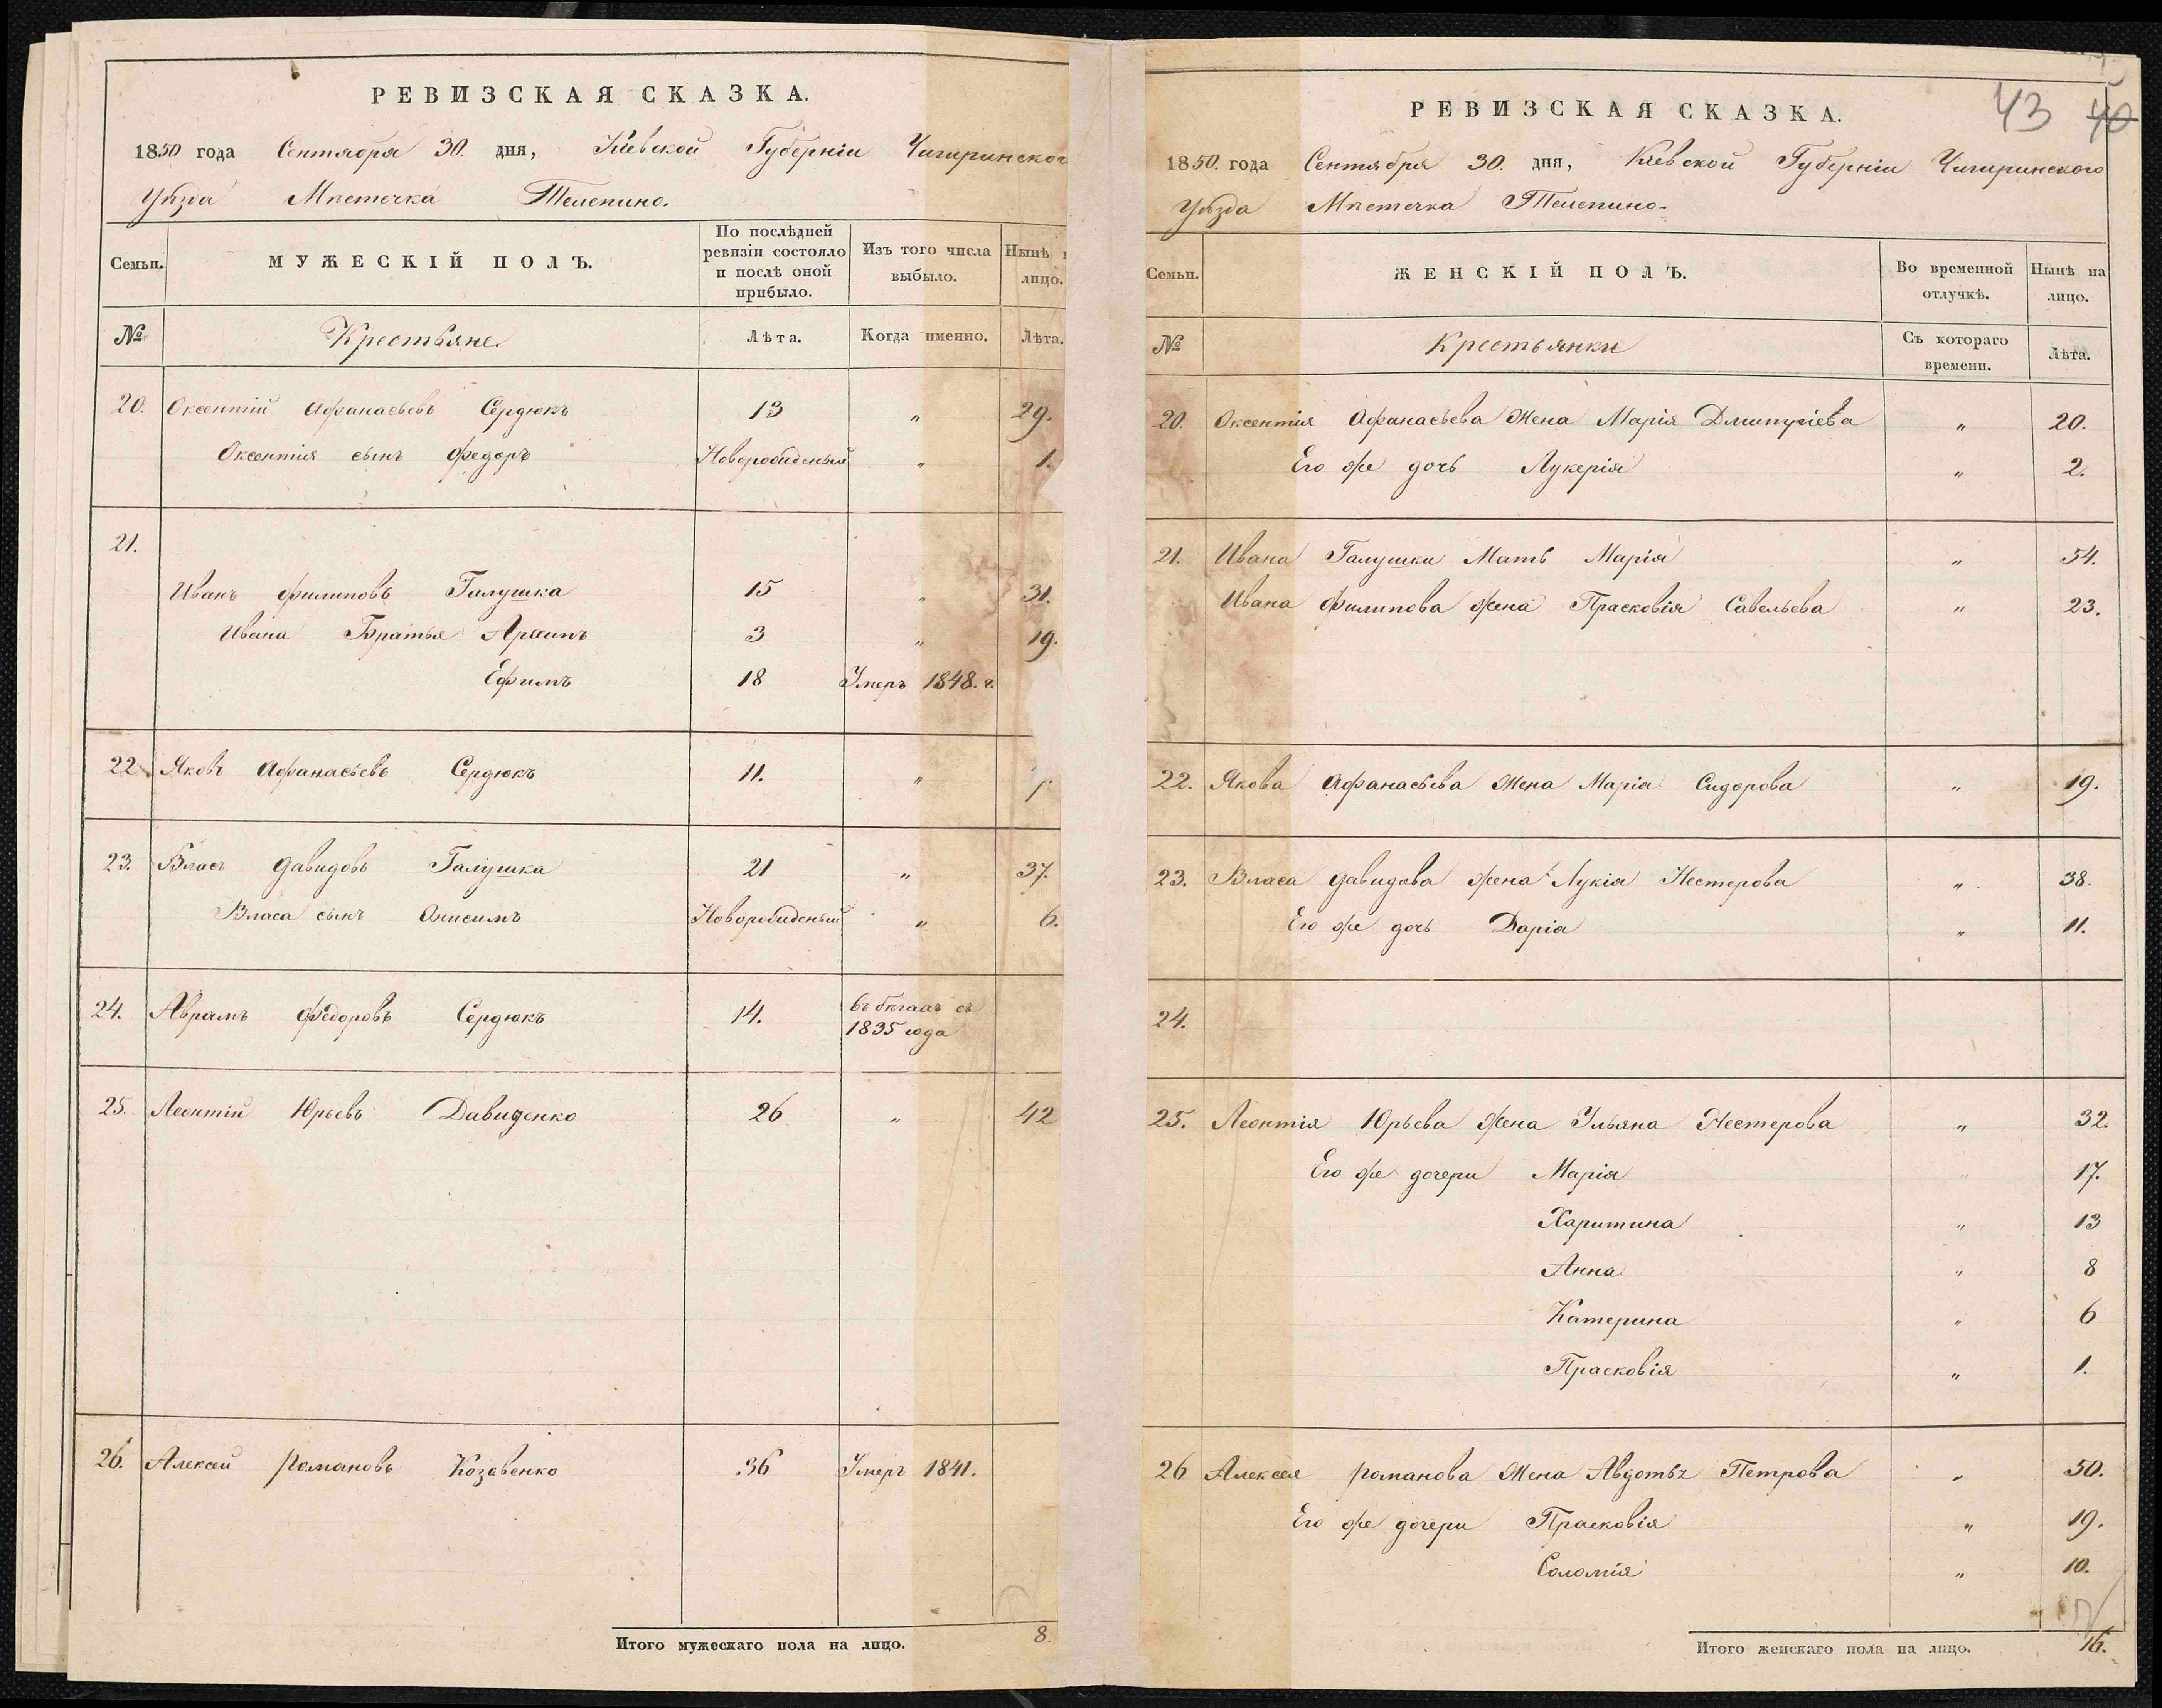 РЕВИЗСКАЯ СКАЗКА.
1850 года Сентября 30. дня, Кіевской Губерніи Чигиринског
Уѣзда Мѣстечка Телепино.
Семьи.
МУЖЕСКІЙ ПОЛЪ.
По послѣдней ревизіи состояло и послѣ оной прибыло.
Изъ того числа выбыло.
Нынѣ лицо.
№ Крестьяне Лѣта. Когда именно. Лѣта.
20. Оксентій Афанасьевъ Сердюкъ 13 „ 29.
Оксентія сынъ Федоръ Новорожденый „ 1.
21.
Иванъ Филиповъ Галушка 15 „ 31.
Ивана Братья Архипъ 3 „ 19.
Ефимъ 18 Умеръ 1848. г.
22. Яковъ Афанасьевъ Сердюкъ 11. „
23. Власъ Давидовъ Галушка 21 „ 37.
Власа сынъ Онисимъ Новорожденый „ 6.
24. Аврамъ Федоровъ Сердюкъ 14. въ бѣгахъ съ
1835 года
25. Леонтій Юрьевъ Давиденко 26 „ 42
26. Алексей Романовъ Козавенко 36 Умеръ 1841.
Итого мужескаго пола на лицо. 8.
43 40
РЕВИЗСКАЯ СКАЗКА.
1850. года Сентября 30. дня, Кіевской Губерніи Чигиринского
Уѣзда Мѣстечка Телепино.
Семьи.
ЖЕНСКІЙ ПОЛЪ.
Во временной отлучкѣ.
Нынѣ на лицо.
№ Крестьянки Съ котораго времени. Лѣта.
20. Оксентія Афанасьева Жена Марія Дмитріева „ 20.
Его же дочь Лукерія „ 2.
21. Ивана Галушки Мать Марія „ 54.
Ивана Филипова жена Прасковія Савельева „ 23.
22. Якова Афанасьева Жена Марія Сидорова „ 19.
23. Власа Давидова жена Лукія Нестерова „ 38.
Его же дочь Дарія „ 11.
24.
25. Леонтія Юрьева жена Ульяна Нестерова „ 32.
Его же дочери Марія „ 17.
Харитина „ 13
Анна „ 8
Катерина „ 6
Прасковія „ 1.
26 Алексея Романова Жена Авдотья Петрова „ 50.
Его же дочери Прасковія „ 19.
Соломія „ 10.
Итого женскаго пола на лицо. 16.